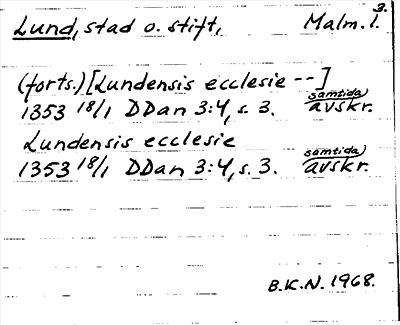 3.
Lund, stad o. stift, Malm. l.
(forts.) [Lundensis ecclesie --]
1353 18/1 DDan 3:4, s. 3. samtida avskr.
Lundensis ecclesie
1353 18/1 DDan 3:4, s. 3. samtida avskr.
B.K.N. 1968.